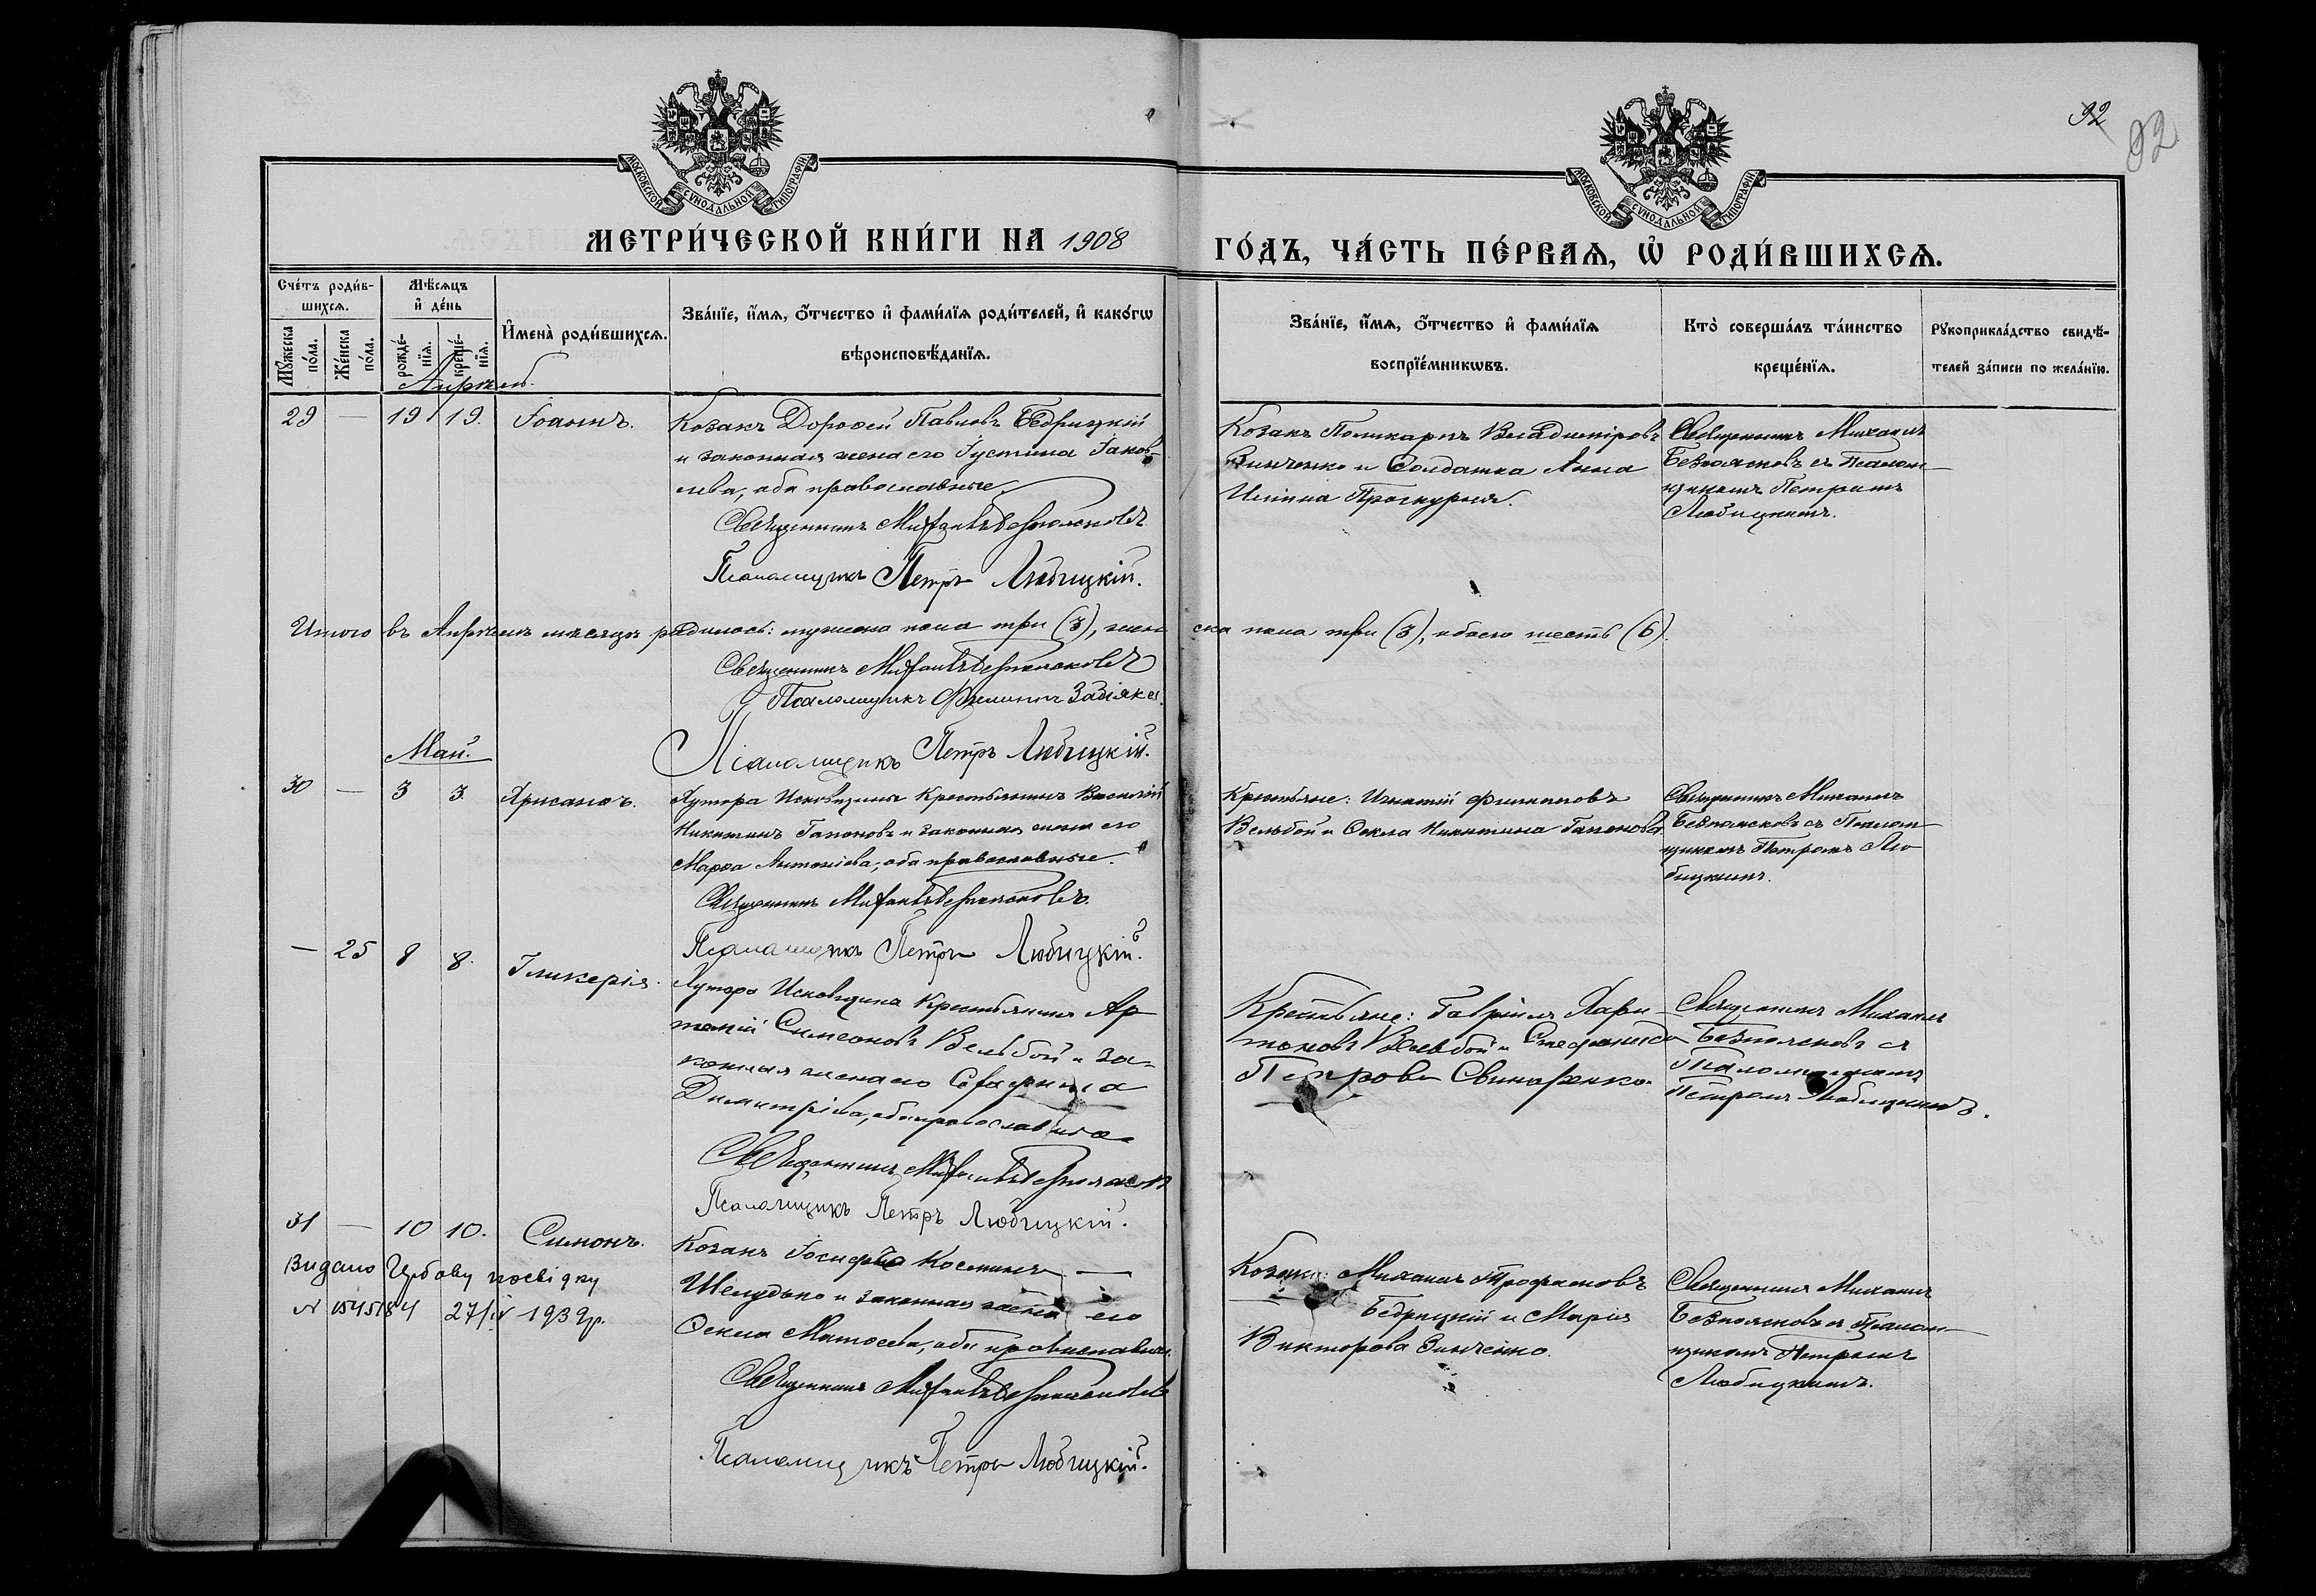 92
92
МОСКОВСКОЙ СѴНОДАЛЬНОЙ ТИПОГРАФІИ
МОСКОВСКОЙ СѴНОДАЛЬНОЙ ТИПОГРАФІИ
МЕТРИ́ЧЕСКОЙ КНИ́ГИ НА 1908
ГО́ДЪ, ЧА́СТЬ ПЕ́РВАѦ, Ѡ҆ РОДИ́ВШИХСѦ.
Сче́тъ роди́в-
шихсѧ.
Мꙋ́жеска по́ла.
Же́нска по́ла.
Мѣ́сѧцъ
и҆ де́нь
рожде́-
нїѧ.
креще́-
нїѧ.
И҆мена̀ роди́вшихсѧ.
Зва́нїе, и҆́мѧ, ѻ҆́тчество и҆ фами́лїѧ роди́телей, и҆ како́гѡ
вѣроисповѣ́данїѧ.
Зва́нїе, и҆́мѧ, ѻ҆́тчество и҆ фами́лїѧ
воспрїе́мникѡвъ.
Кто̀ соверша́лъ та́инство
креще́нїѧ.
Рꙋкоприкла́дство свидѣ́-
телей за́писи по жела́нїю.
Апрель.
29 — 19 19. Іоаннъ.
Козакъ Дорофей Павловъ Бедрицкій
и законная жена его Іустина Іаков-
лева, оба православные.
Священникъ Михаилъ Безпоясковъ
Псаломщикъ Петръ Любицкій.
Козакъ Поликарпъ Владиміровъ
Зинченко и Солдатка Анна
Иліина Проскурня.
Священникъ Михаилъ
Безпоясковъ съ Псалом-
щикомъ Петромъ
Любицкимъ.
Итого въ Апрѣлѣ мѣсяцѣ родилось: мужеска пола три (3), женска пола три (3), обоего шесть (6).
Священникъ Михаилъ Безпоясковъ
Псаломщикъ Филиппъ Забіяка
Псаломщикъ Петръ Любицкій.
Май.
30 — 3 3. Хрисанѳъ.
Хутора Исковщины Крестьянинъ Василій
Никитинъ Гапоновъ и законная жена его
Марѳа Антоніева, оба православные.
Священникъ Михаилъ Безпоясковъ.
Псаломщикъ Петръ Любицкій.
Крестьяне: Игнатій Филиповъ
Вельбой и Ѳекла Никитина Гапонова
Священникъ Михаилъ
Безпоясковъ съ Псалом-
щикомъ Петромъ Лю-
бицкимъ.
— 25 8 8. Гликерія.
Хутора Исковщина Крестьянинъ Ар-
темій Симеоновъ Вельбой и за-
конная жена его Серафима
Димитріева, оба православные
Священникъ Михаилъ Безпоясковъ
Псаломщикъ Петръ Любицкій.
Крестьяне: Гавріилъ Хари-
тоновъ Вельбой и Стефанида
Петрова Свинаренко.
Священникъ Михаилъ
Безпоясковъ съ
Псаломщикомъ
Петромъ Любицкимъ.
31 — 10 10. Симонъ.
Видано Цюбову посвідку
N 0545184 27/IV 1939р.
Козакъ Іосифъ Косминъ —
Шелудько и законная жена его
Ѳекла Матѳеева, оба православные.
Священникъ Михаилъ Безпоясковъ
Псаломщикъ Петръ Любицкій.
Козаки: Михаилъ Трофимовъ
Бедрицкій и Марія
Викторова Зинченко.
Священникъ Михаилъ
Безпоясковъ съ Псалом-
щикомъ Петромъ
Любицкимъ.